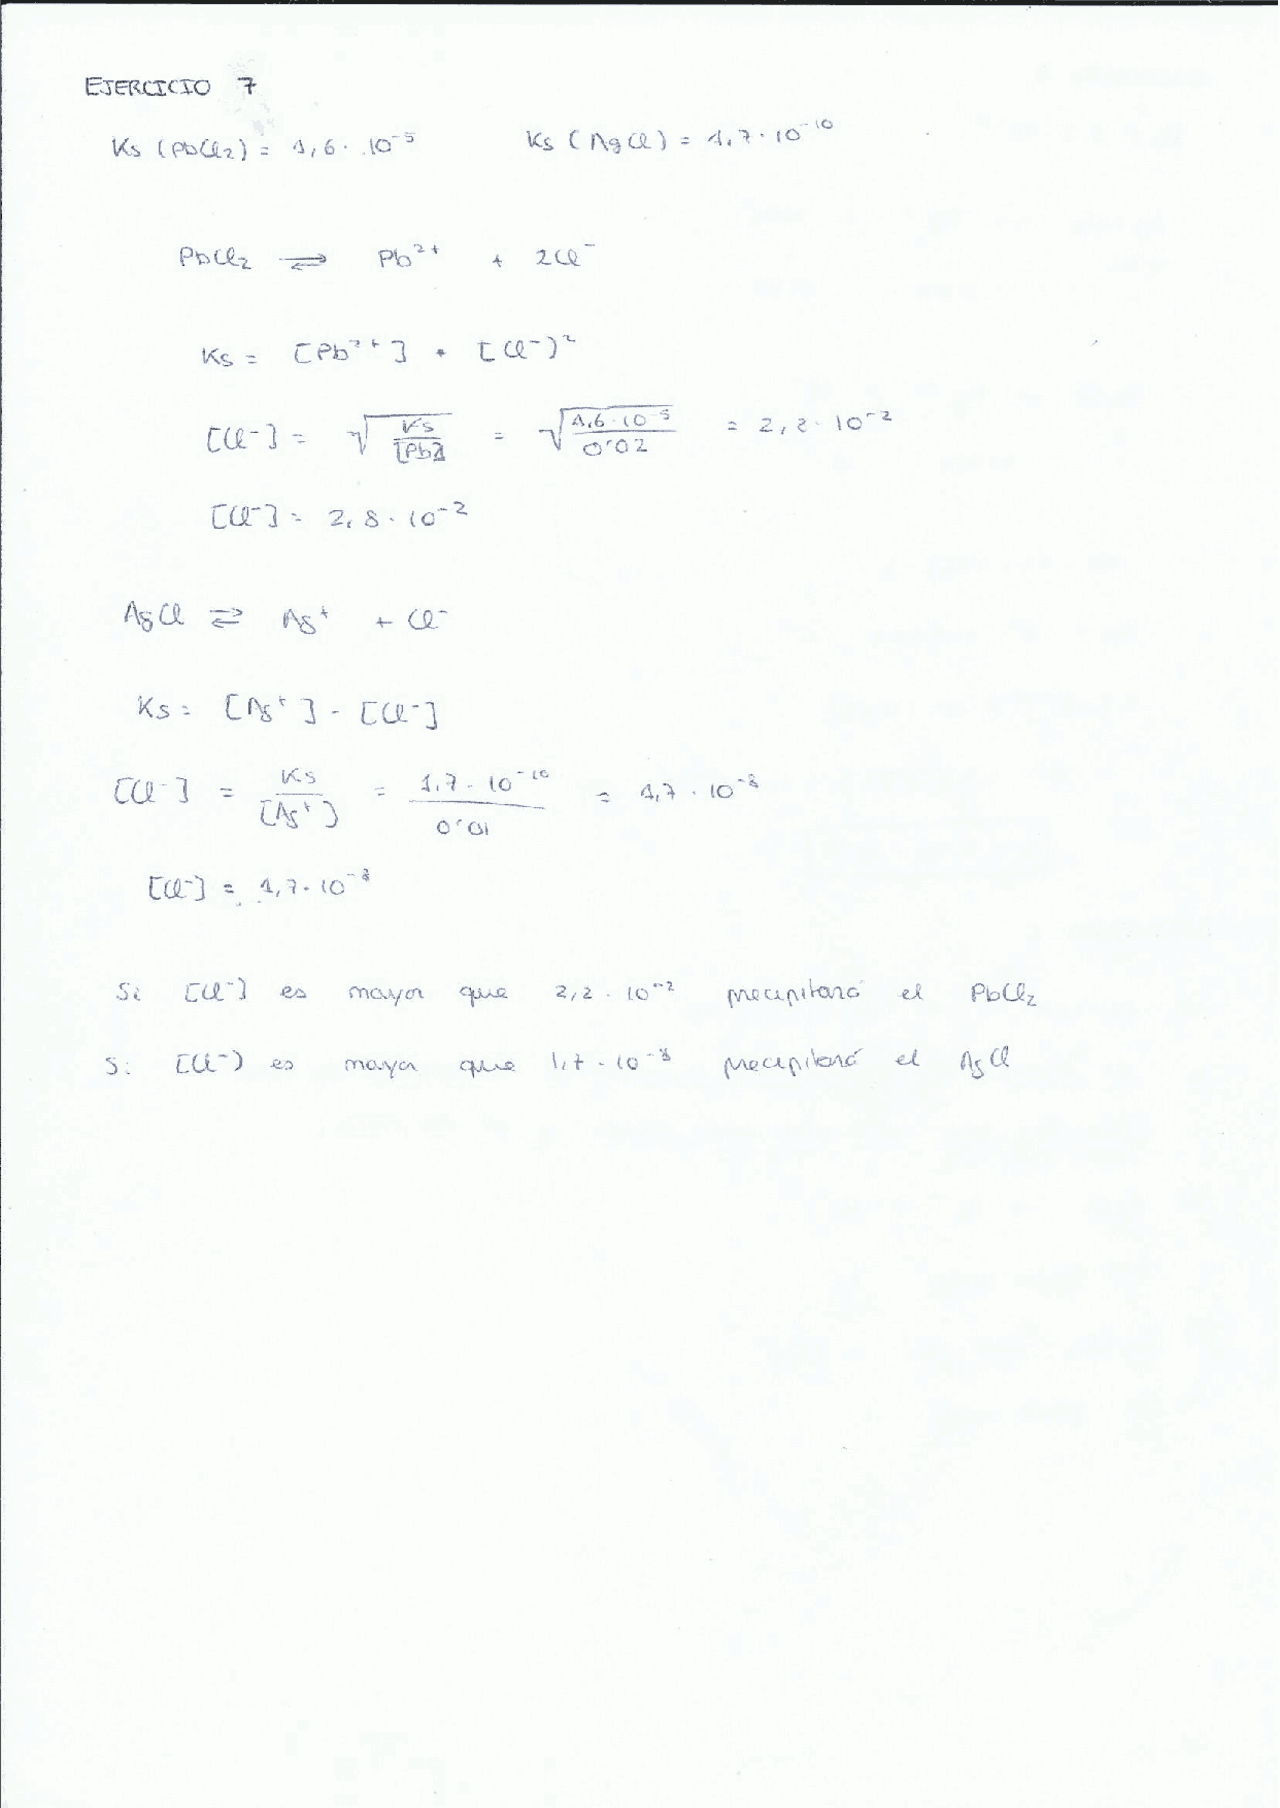 EJERCICIO 7
Ks (PbCl₂) = 1,6 · 10⁻⁵ Ks (AgCl) = 1,7 · 10⁻¹⁰
PbCl₂ ⇌ Pb²⁺ + 2Cl⁻
Ks = [Pb²⁺] · [Cl⁻)²
[Cl⁻] = √(Ks/[Pb]) = √(1,6 · 10⁻⁵/0'02) = 2,2 · 10⁻²
[Cl⁻] = 2,8 · 10⁻²
AgCl ⇌ Ag⁺ + Cl⁻
Ks = [Ag⁺] - [Cl⁻]
[Cl⁻] = Ks/[Ag⁺] = 1,7 · 10⁻¹⁰/0'01 = 1,7 · 10⁻⁸
[Cl⁻] = 1,7 · 10⁻⁸
Si [Cl⁻] es mayor que 2,2 · 10⁻² precipitará el PbCl₂
Si [Cl⁻) es mayor que 1,7 · 10⁻⁸ precipitará el AgCl